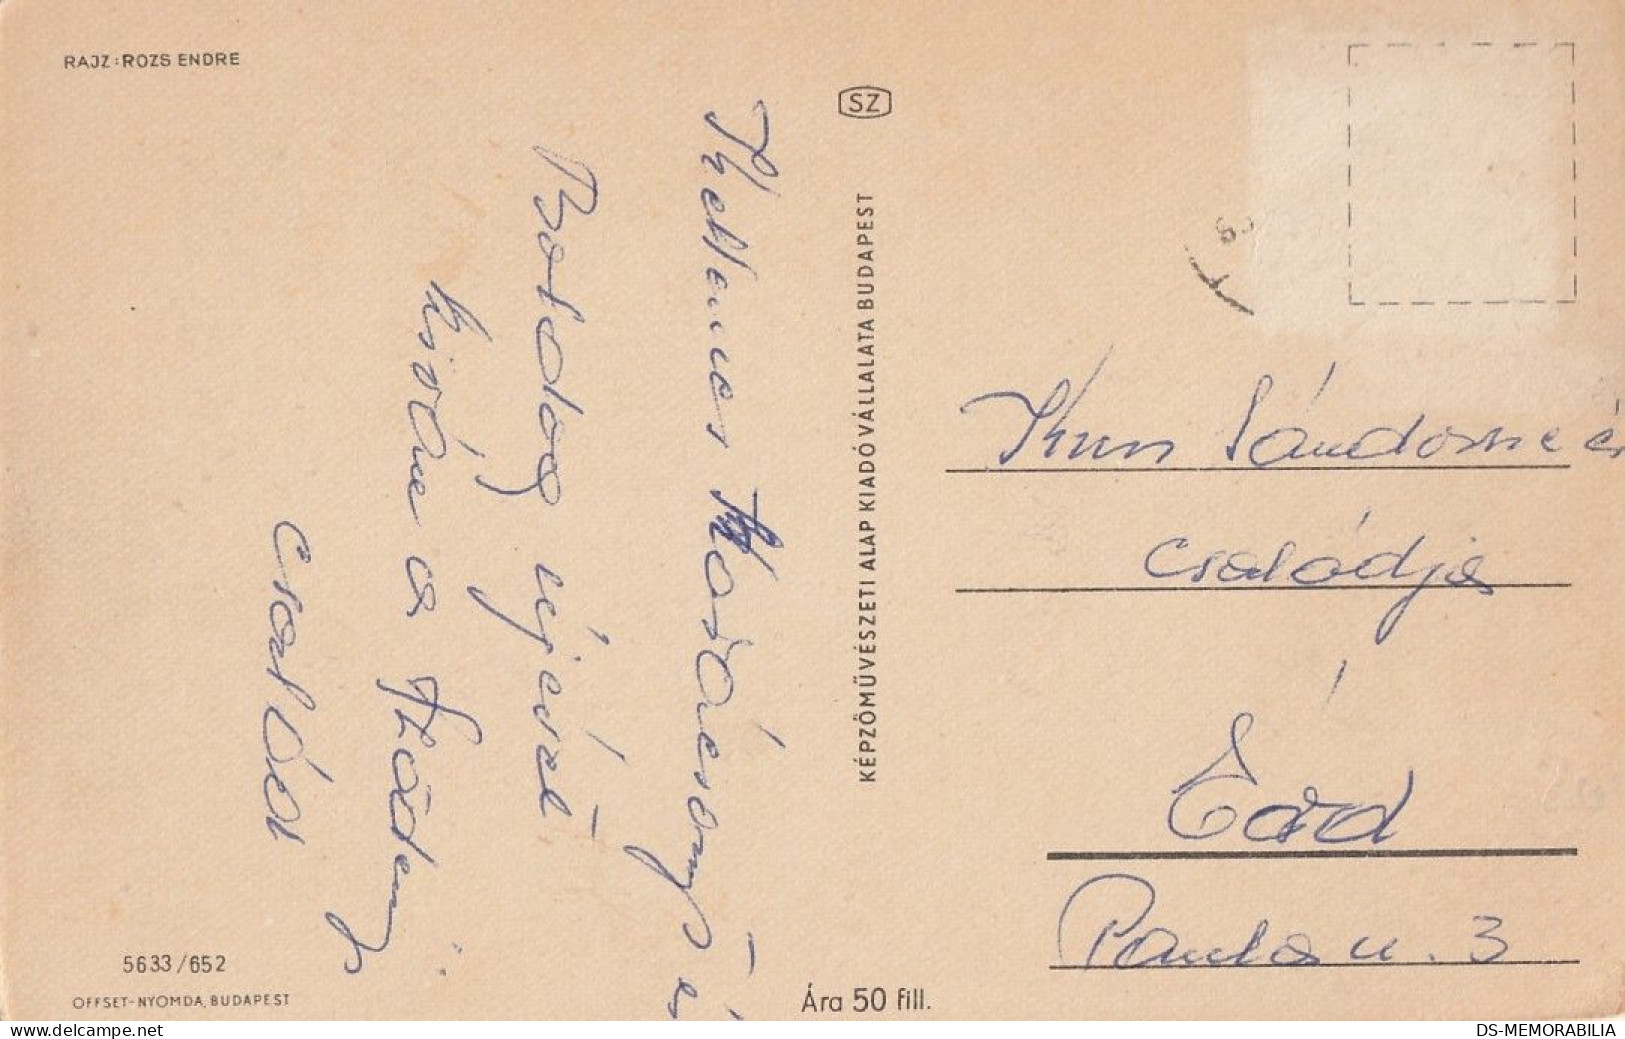 RAJZ: ROZS ENDRE
SZ
KÉPZŐMŰVÉSZETI ALAP KIADÓVÁLLALATA BUDAPEST
Kellemes Karácsonyt és
Boldog újévet
kíván a
család
Kun Sándorné és
családja
Érd
Panka u. 3
5633/652
OFFSET-NYOMDA, BUDAPEST
Ára 50 fill.
www.delcampe.net
DS-MEMORABILIA